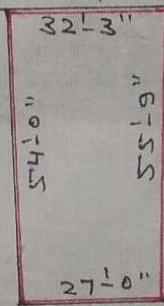 32'-3"
54'-0"
55'-9"
27'-0"